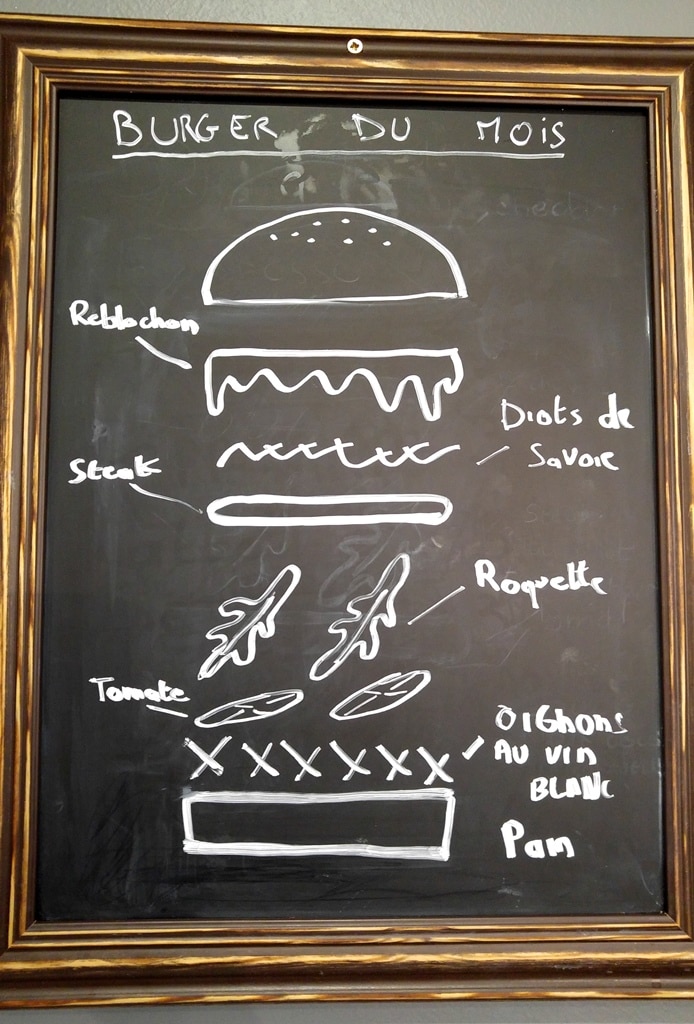 BURGER DU MOIS
Reblochon
Diots de
Savoie
Steak
Roquette
Tomate
OIGNONS
AU VIN
BLANC
Pain